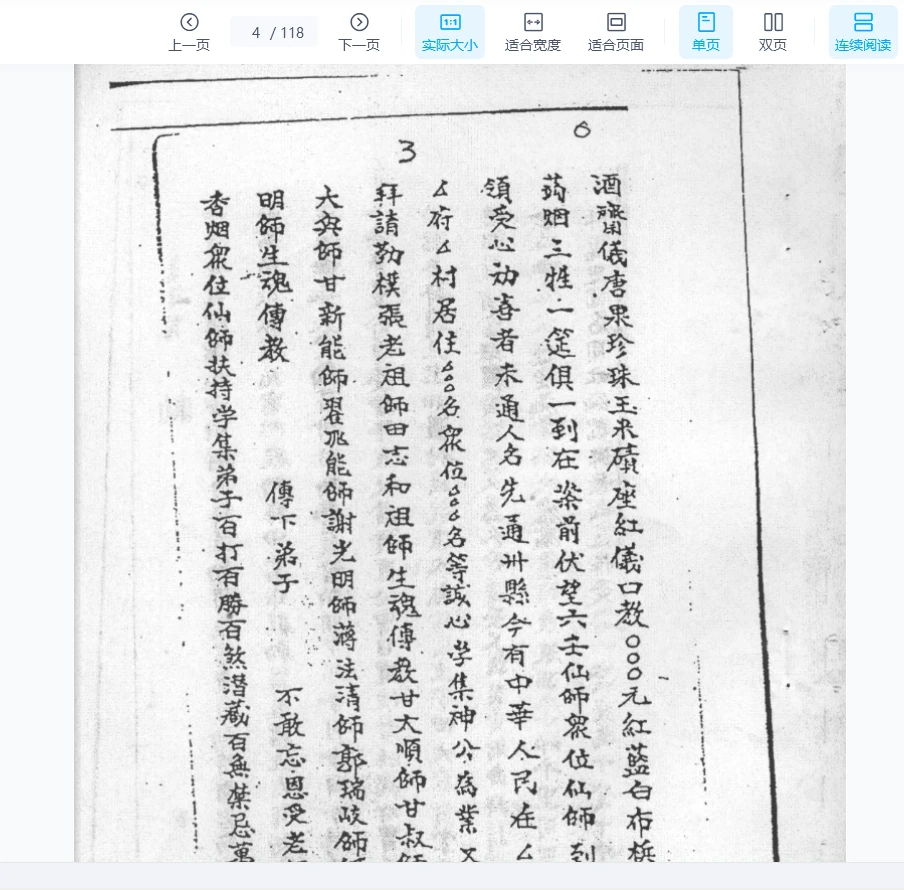 上一页
4 / 118
下一页
1:1
实际大小
适合宽度
适合页面
单页
双页
连续阅读
6
3
酒齋儀唐果珍珠玉米磧座紅儀口教○○○元紅藍白布
蒟烟三牲一筵俱一到在案前伏望六壬仙師眾位仙師到
領受心功喜者未通人名先通卅縣今有中華人民在厶
厶府厶村居住厶厶厶名眾位厶厶厶名等誠心学集神公為業又
拜請勅樸張老祖師田志和祖師生魂傳教甘大順師甘叔師
大兴師甘新能師翟飛能師謝光明師蔣法清師郭瑞岐師師
明師生魂傳教 傳下弟子 不敢忘恩受老
香烟眾位仙師扶持学集弟子百打百勝百煞潛藏百無禁忌萬